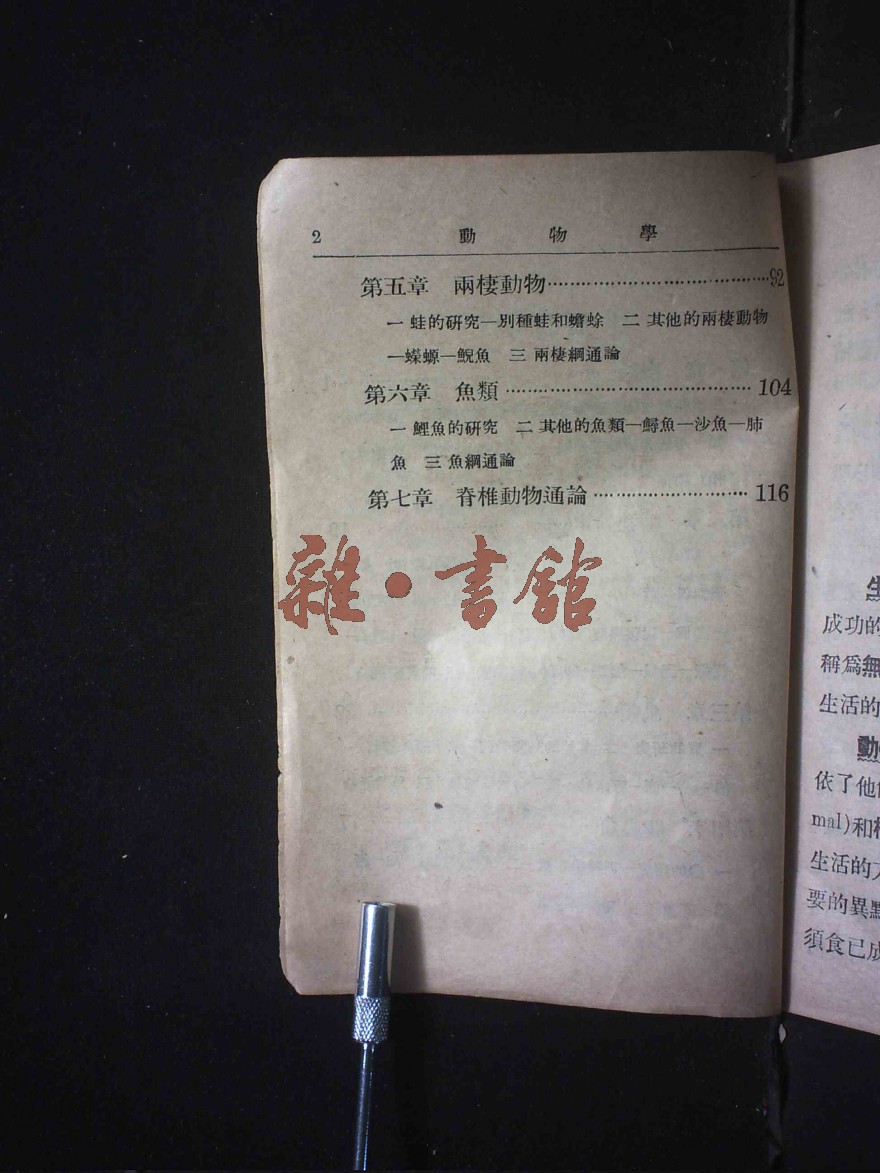 2 動物學
第五章 兩棲動物……………………………………92
一 蛙的研究—別種蛙和蟾蜍 二 其他的兩棲動物
—蠑螈—鯢魚 三 兩棲綱通論
第六章 魚類……………………………………104
一 鯉魚的研究 二 其他的魚類—鱘魚—沙魚—肺
魚 三 魚綱通論
第七章 脊椎動物通論………………………116
雜·書館
成功的
稱爲無
生活的
動
依了他
mal)和
生活的
要的異點
須食已成